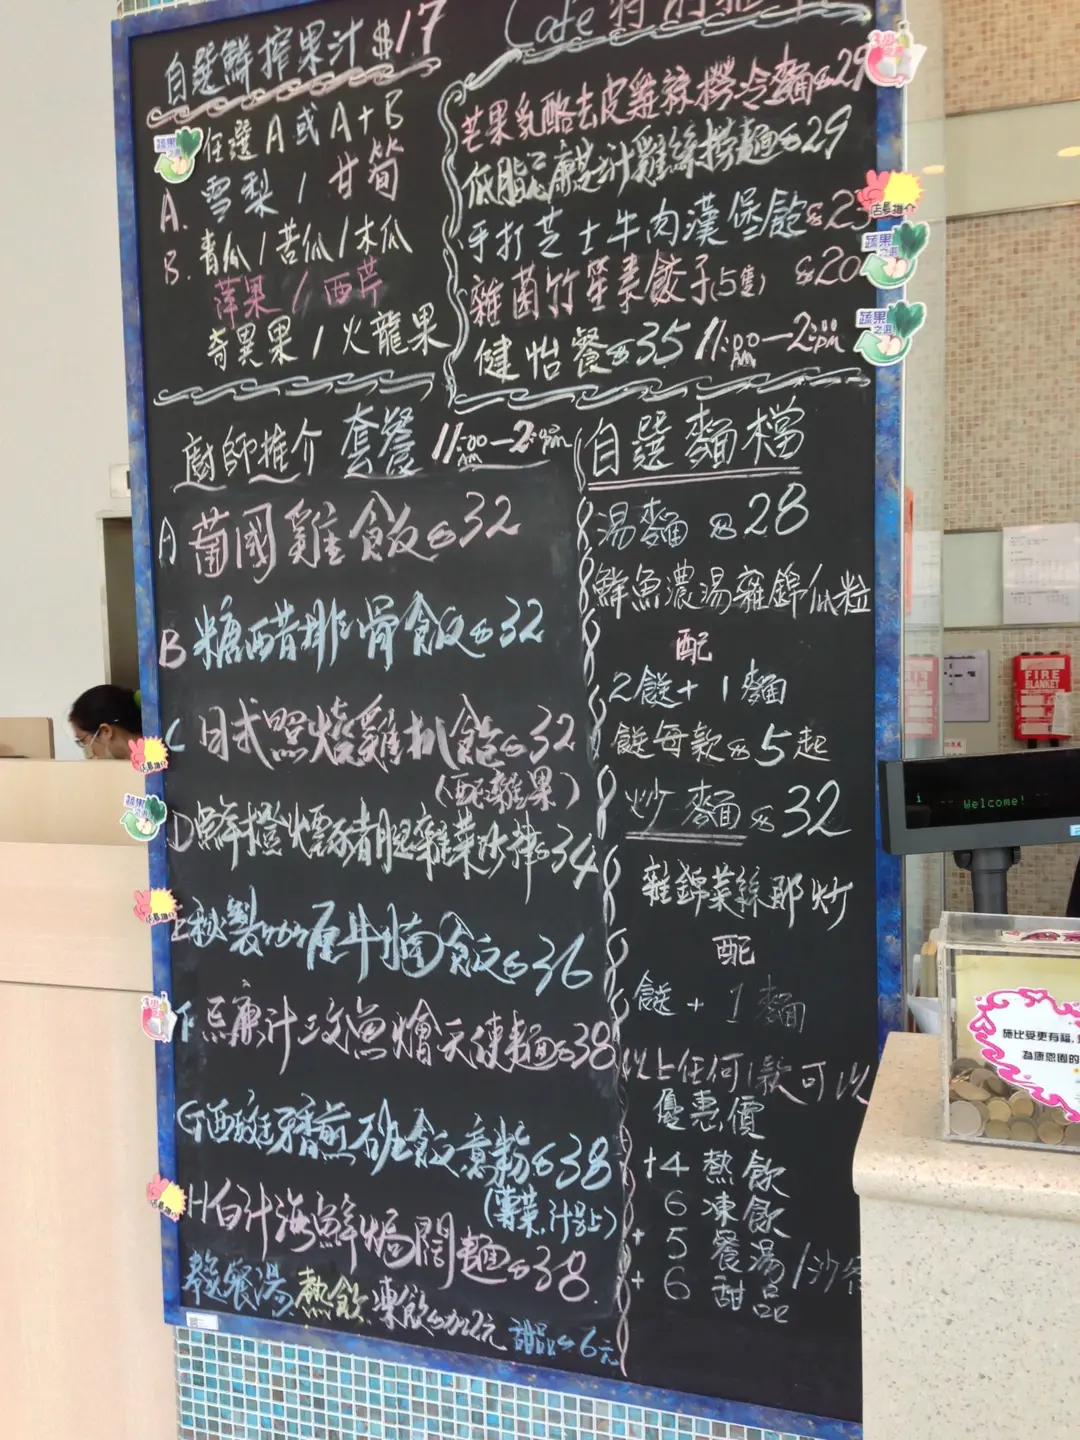 自選鮮搾果汁$17
任選A或A+B
A. 雪梨/甘筍
B. 青瓜/苦瓜/木瓜
萍果/西芹
奇異果/火龍果
Cafe
芒果乳酪去皮雞絲撈冷麵$29
低脂芝麻芝汁雞絲撈麵$29
手打芝士牛肉漢堡飽$23
雜菌竹笙素餃子(5隻) $20
健怡餐$35 11:00AM—2:00PM
廚師推介 套餐 11:00AM—2:00pm
A 葡國雞飯$32
B 糖醋排骨飯$32
C 日式照燒雞扒飽$32
(配雜果)
D 鮮橙煙豬腿雜菜沙律$34
E 秘製咖喱牛腩飯$36
F 汁 魚燴天使麵$38
G 西班牙香煎 飯意粉$38
(薯菜.汁另上)
H 白汁海鮮焗闊麵$38
餐湯 熱飲.凍飲加2元 甜品$6元
自選麵檔
湯麵 $28
鮮魚濃湯雜錦瓜粒
配
2餸+1麵
餸每款$5起
炒麵$32
雜錦菜絲即炒
配
餸+1麵
以上任何1款可以
優惠價
+4 熱飲
6 凍飲
+5 餐湯/沙律
+6 甜品
蔬果之選
店長推介
蔬果之選
蔬果之選
店長推介
蔬果之選
店長推介
店長推介
FIRE BLANKET
Welcome!
施比受更有福,
為康恩園的